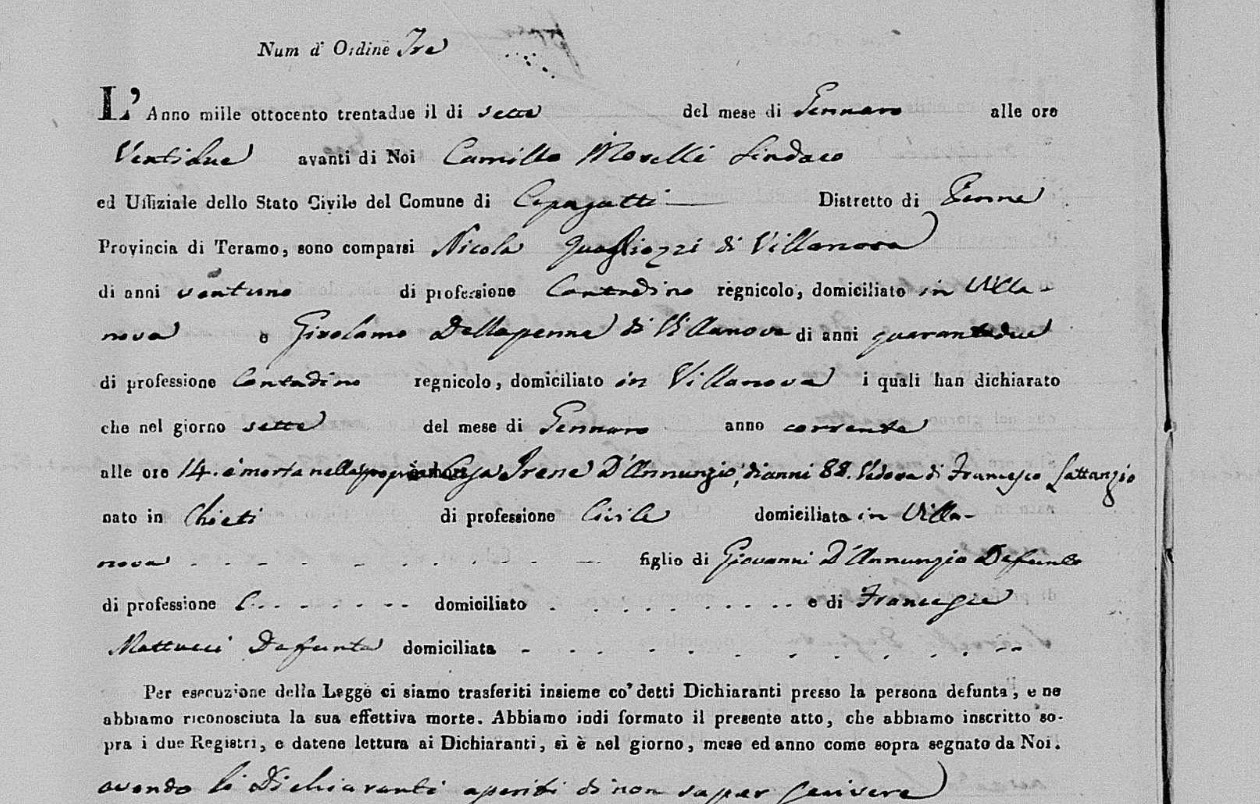 Num d' Ordine Tre
L' Anno mille ottocento trentadue il di sette del mese di Gennaro alle ore
Ventidue avanti di Noi Camillo Morelli Sindaco
ed Uffiziale dello Stato Civile del Comune di Cepagatti Distretto di Penne
Provincia di Teramo, sono comparsi Nicola Quagliozzi di Villanova
di anni ventuno di professione Contadino regnicolo, domiciliato in Villa-
nova e Girolamo Dellapenna di Villanova di anni quarantadue
di professione Contadino regnicolo, domiciliato in Villanova i quali han dichiarato
che nel giorno sette del mese di Gennaro anno corrente
alle ore 14. è morta nella propria Casa Irene D'Annunzio, di anni 88. Vedova di Francesco Lattanzio
nato in Chieti di professione Civile domiciliato in Villa-
nova figlio di Giovanni D'Annunzio Defunto
di professione C. domiciliato e di Francesca
Mattucci Defunta domiciliata
Per esecuzione della Legge ci siamo trasferiti insieme co' detti Dichiaranti presso la persona defunta, e ne
abbiamo riconosciuta la sua effettiva morte. Abbiamo indi formato il presente atto, che abbiamo inscritto so-
pra i due Registri, e datene lettura ai Dichiaranti, si è nel giorno, mese ed anno come sopra segnato da Noi.
avendo li Dichiaranti asseriti di non saper scrivere